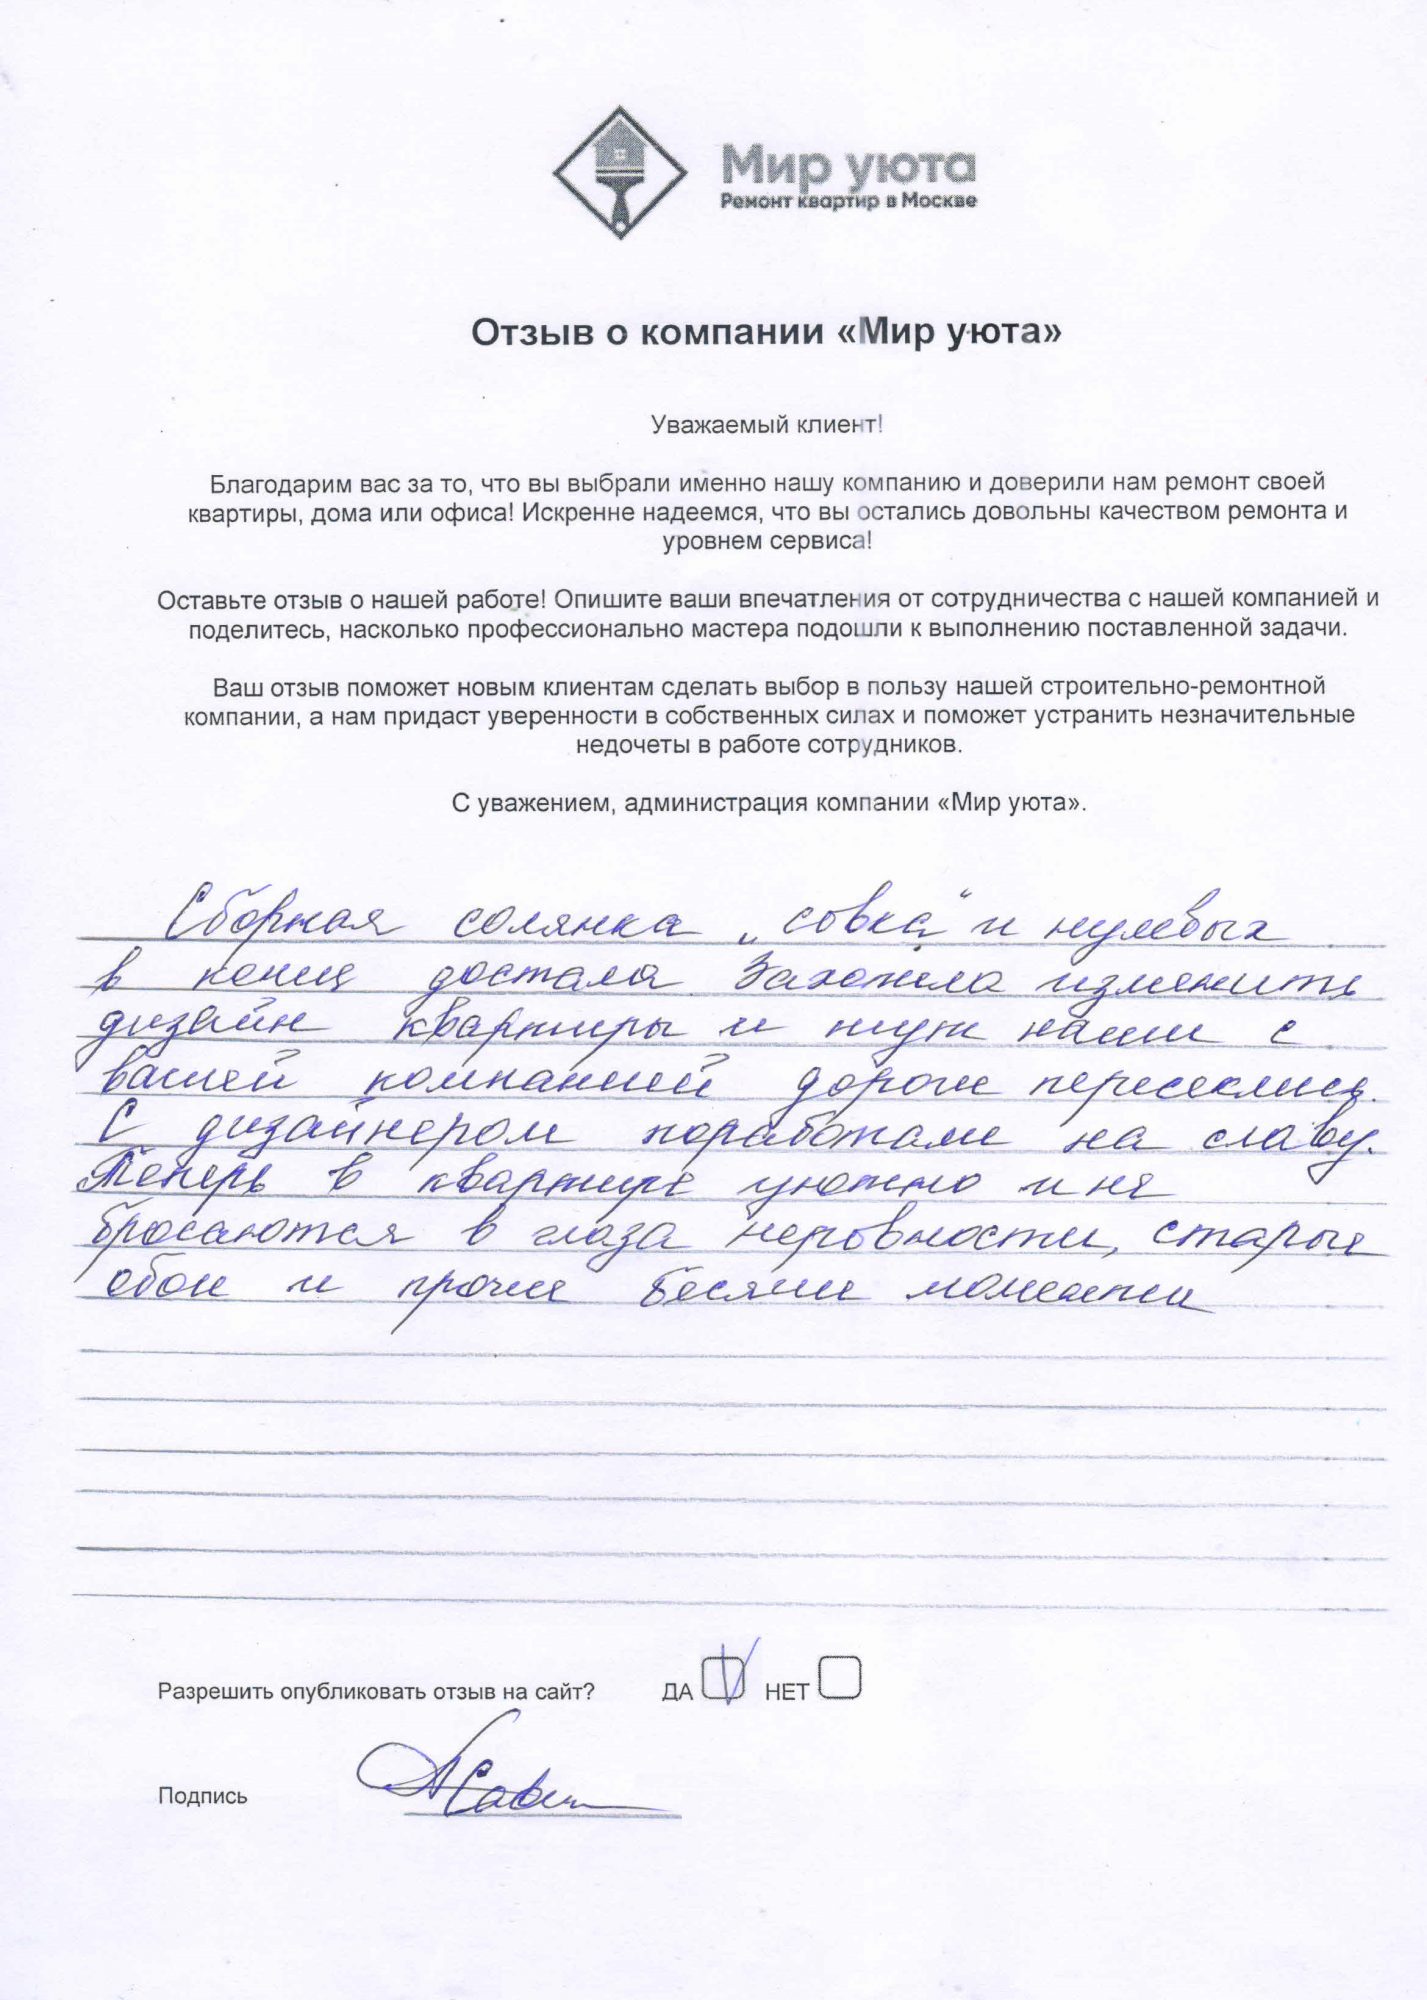 Мир уюта
Ремонт квартир в Москве
Отзыв о компании «Мир уюта»
Уважаемый клиент!
Благодарим вас за то, что вы выбрали именно нашу компанию и доверили нам ремонт своей
квартиры, дома или офиса! Искренне надеемся, что вы остались довольны качеством ремонта и
уровнем сервиса!
Оставьте отзыв о нашей работе! Опишите ваши впечатления от сотрудничества с нашей компанией и
поделитесь, насколько профессионально мастера подошли к выполнению поставленной задачи.
Ваш отзыв поможет новым клиентам сделать выбор в пользу нашей строительно-ремонтной
компании, а нам придаст уверенности в собственных силах и поможет устранить незначительные
недочеты в работе сотрудников.
С уважением, администрация компании «Мир уюта».
Сборная солянка „совка“ и нулевых
в конец достала. Захотела изменить
дизайн квартиры и тут наши с
вашей компанией дороги пересеклись.
С дизайнером поработали на славу.
Теперь в квартире уютно и не
бросаются в глаза неровности, старые
обои и прочие бесячие моменты
Разрешить опубликовать отзыв на сайт? ДА НЕТ
Подпись